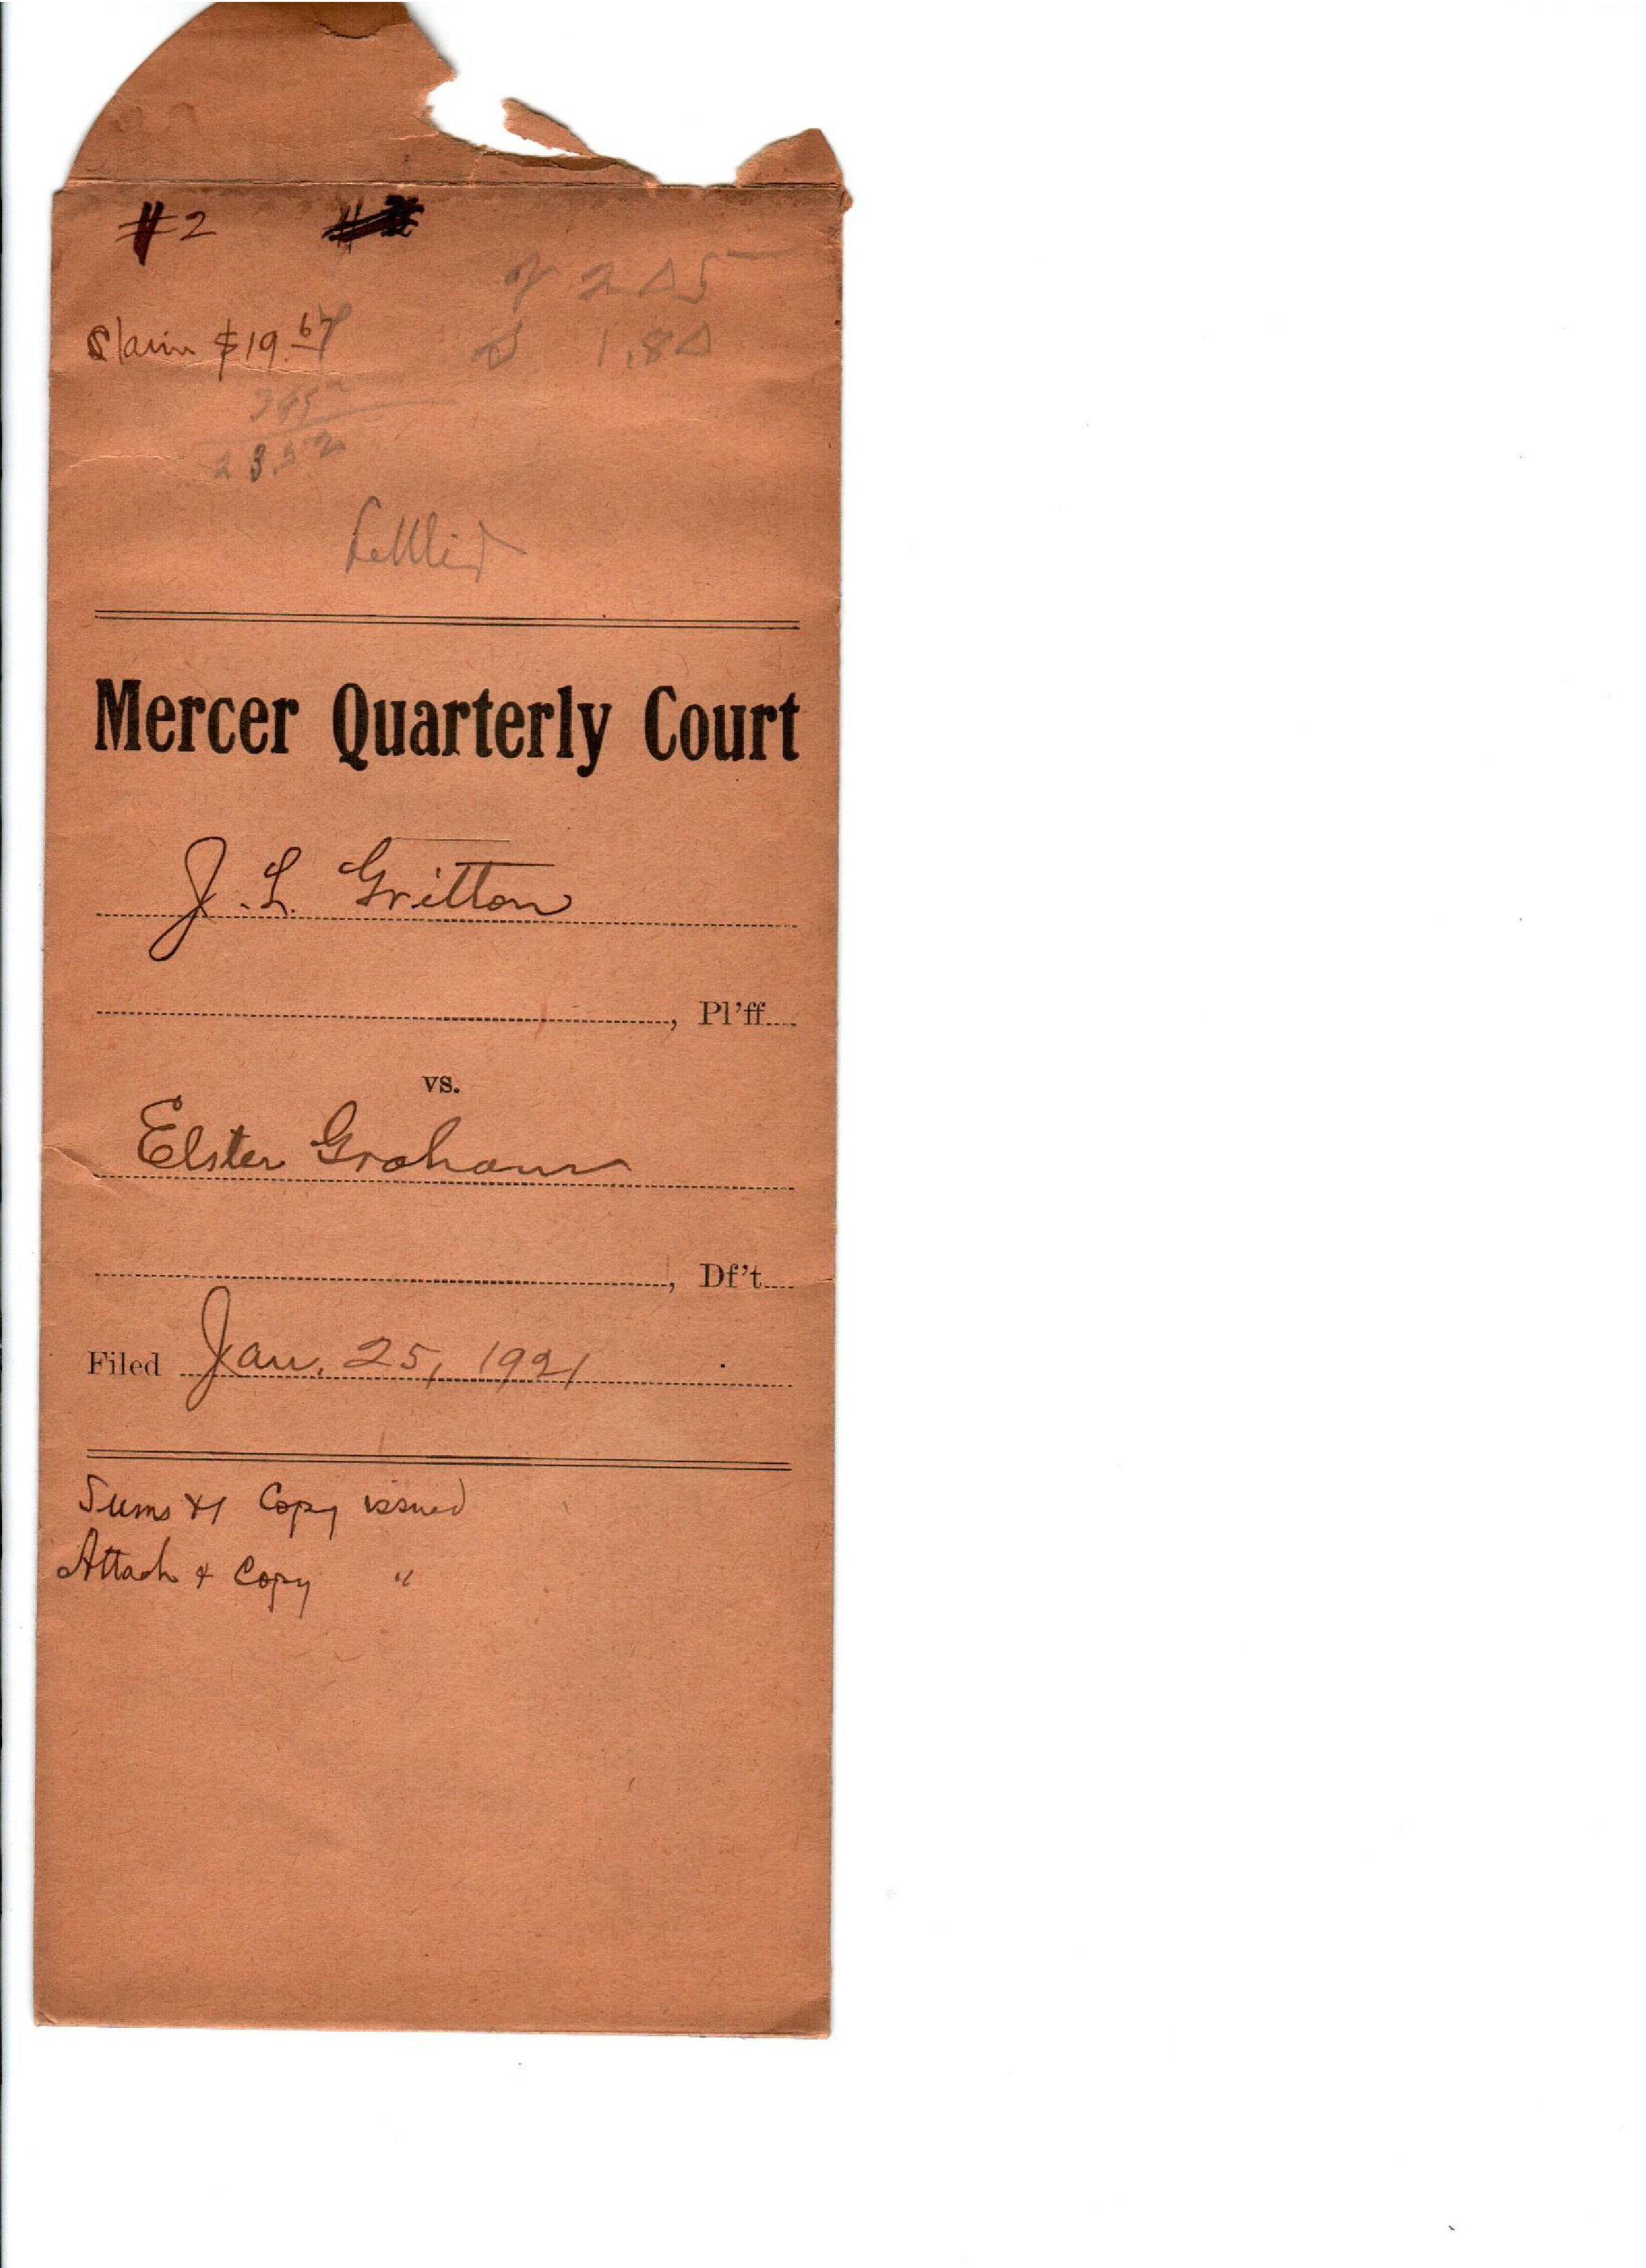 #2
Claim $19.67
2 05
1.80
385
23.52
Settled
Mercer Quarterly Court
J. L. Gritton
, Pl'ff
vs.
Elster Graham
, Df't
Filed Jan. 25, 1921
Sums & 1 Copy issued
Attach & Copy "